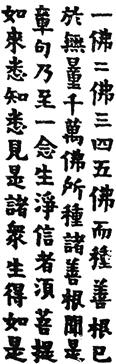 一佛二佛三四五佛而種善根已
於無量千萬佛所種諸善根聞是
章句乃至一念生淨信者須菩提
如來悉知悉見是諸衆生得如是